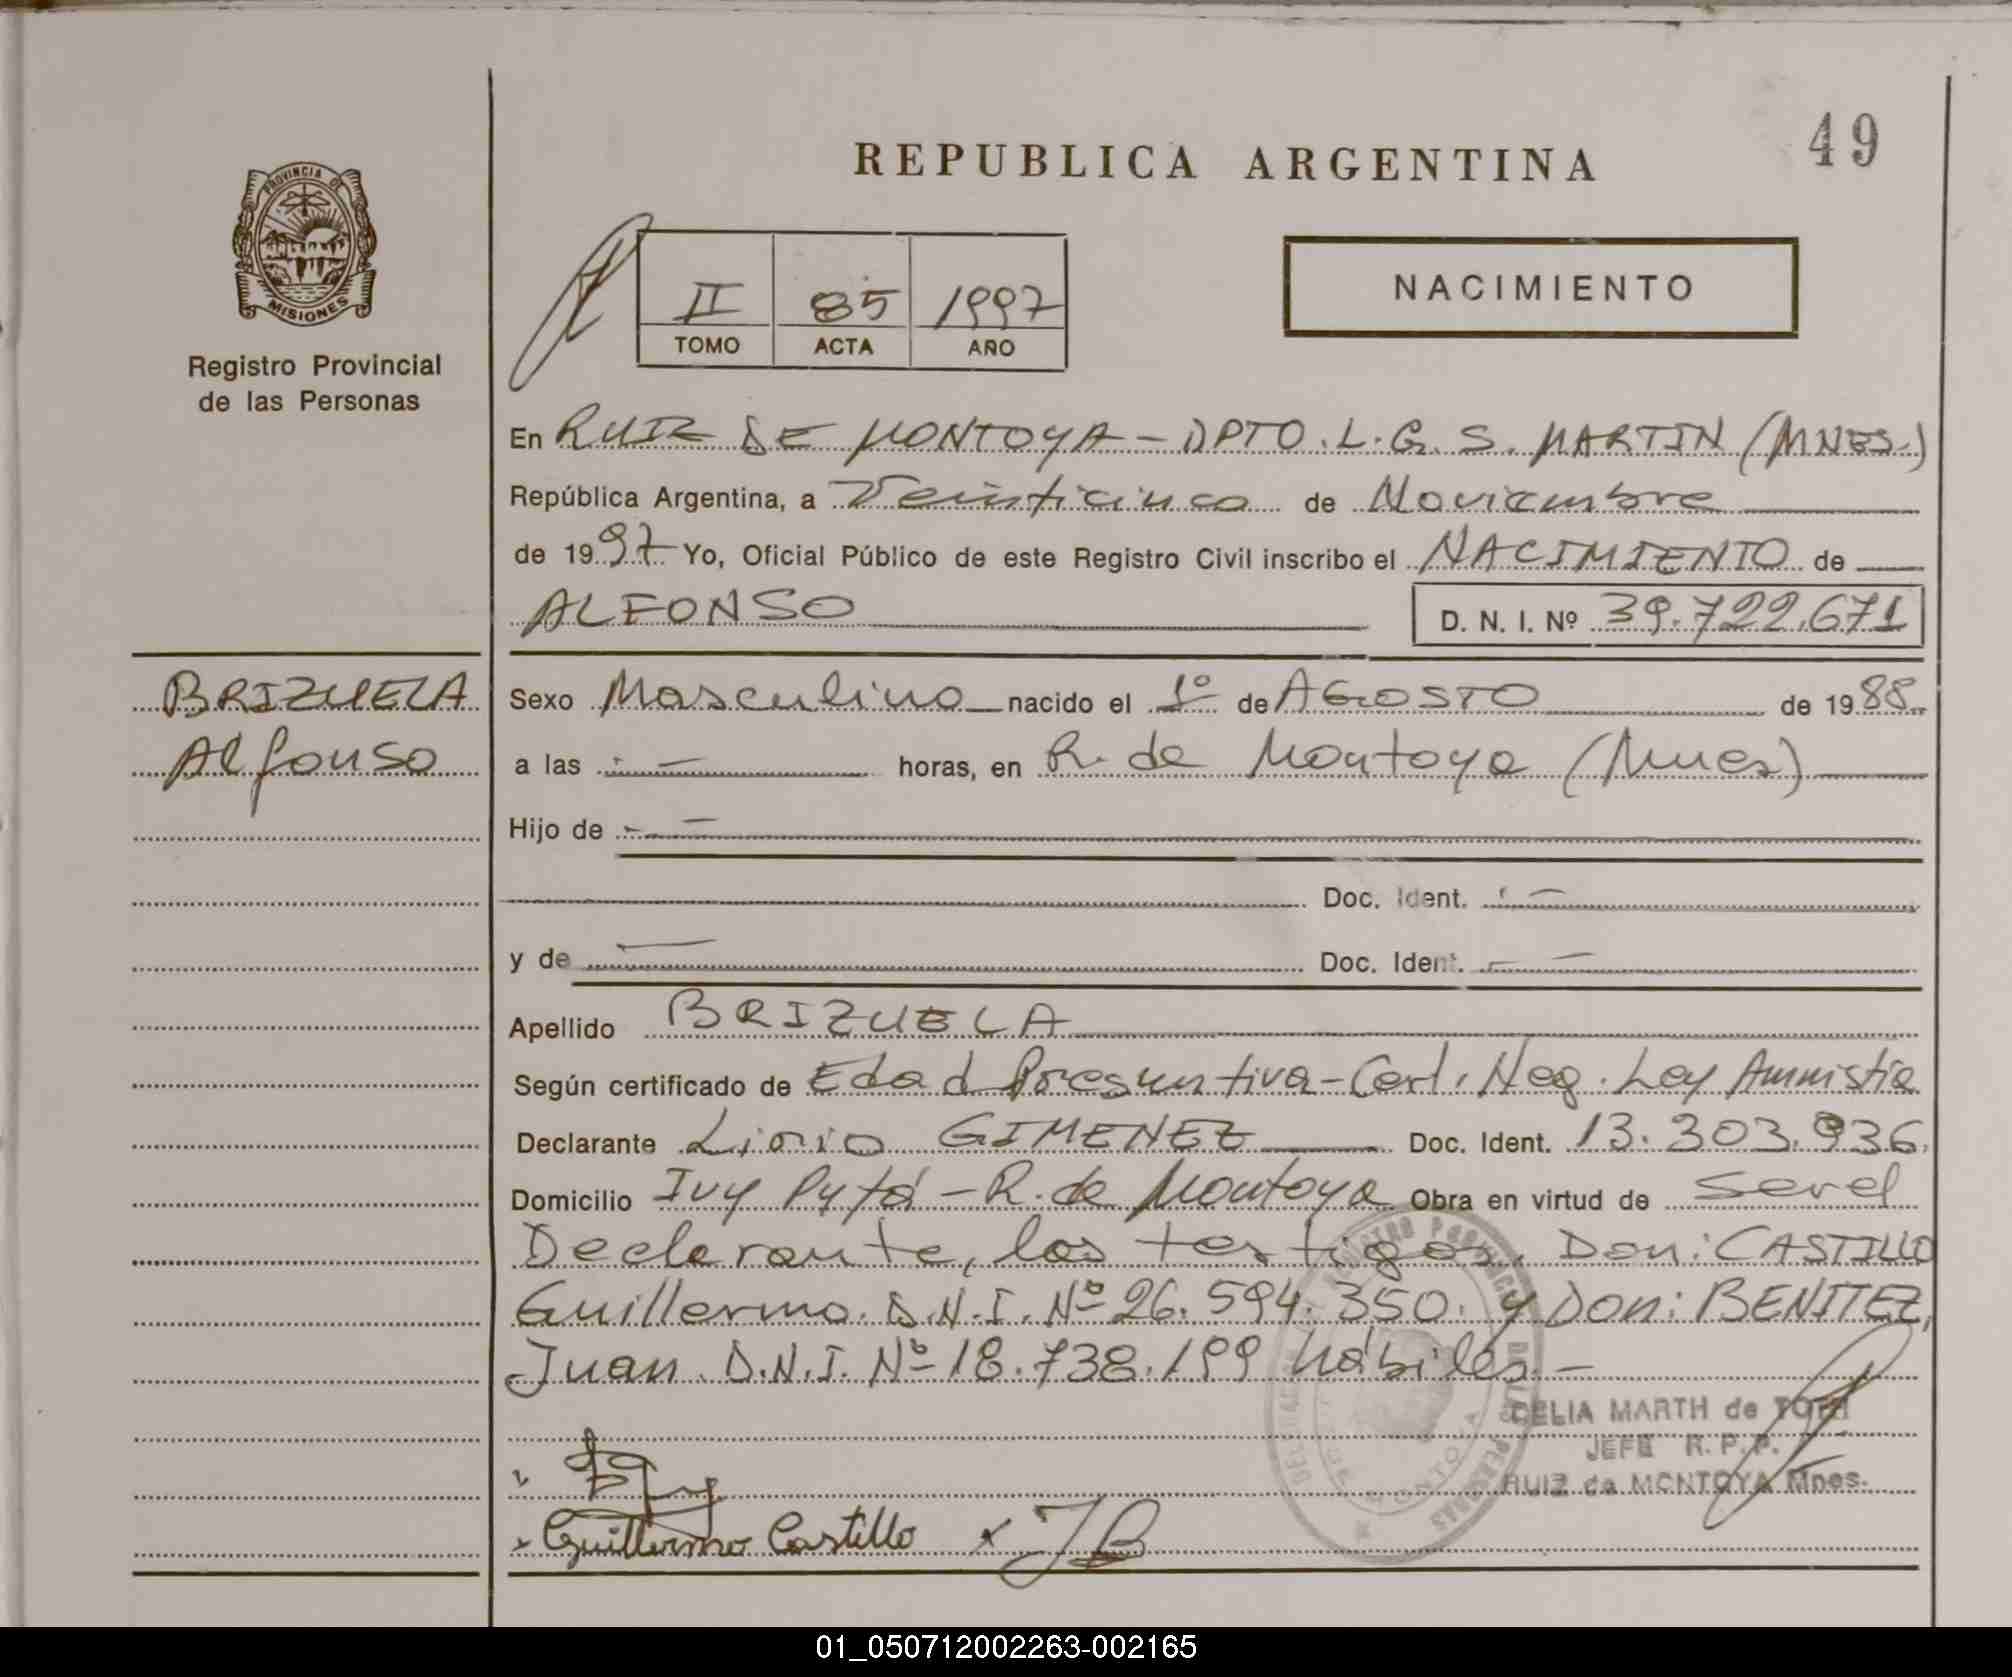 49
REPUBLICA ARGENTINA
PROVINCIA DE
MISIONES
Registro Provincial
de las Personas
II 85 1997
TOMO ACTA AÑO
NACIMIENTO
En RUIZ DE MONTOYA - DPTO. L. G. S. MARTIN (MNES.)
República Argentina, a Veinticinco de Noviembre
de 1997 Yo, Oficial Público de este Registro Civil inscribo el NACIMIENTO de
ALFONSO D. N. I. Nº 39.722.671
BRIZUELA
Alfonso
Sexo Masculino nacido el 1º de AGOSTO de 1988
a las . — horas, en R. de Montoya (Mnes)
Hijo de . —
Doc. Ident. . —
y de — Doc. Ident. —
Apellido BRIZUELA
Según certificado de Edad Presuntiva - Cert. Neg. Ley Amnistia
Declarante Lirio GIMENEZ Doc. Ident. 13.303.936.
Domicilio Ivy Pytá - R. de Montoya Obra en virtud de ser el
Declarante, los testigos. Don: CASTILLO
Guillermo. D.N.I. Nº 26.594.350. y Don: BENITEZ,
Juan. D.N.I. Nº 18.738.199 hábiles. -
CELIA MARTH de TOTH
JEFE R. P. P.
RUIZ de MONTOYA Mnes.
Guillermo Castillo x JB
01_050712002263-002165